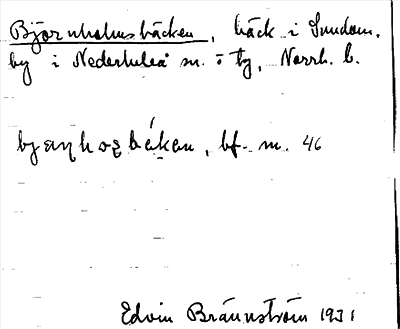 Björnholmsbäcken, bäck i Sundom,
by i Nederluleå sn. o tg, Norrb. l.
bf. m. 46
Edvin Brännström 1931